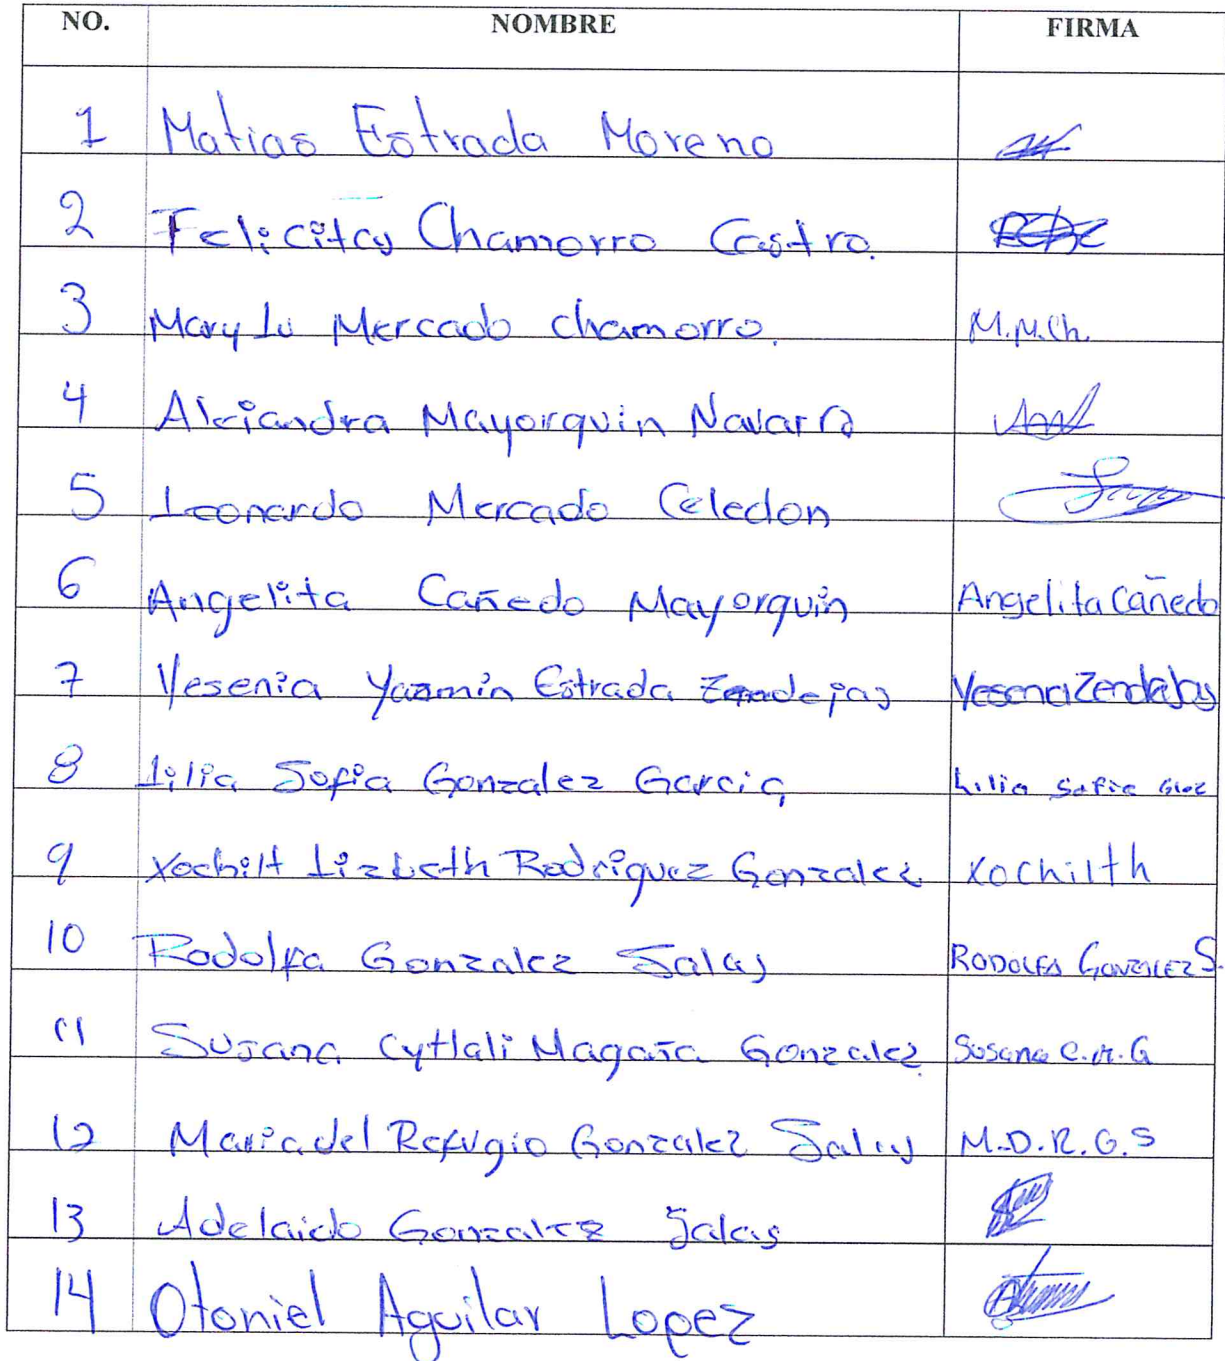 NO. NOMBRE FIRMA
1 Matias Estrada Moreno
2 Felicitas Chamorro Castro.
3 Mary Lu Mercado chamorro. M.M.Ch.
4 Alejandra Mayorquin Navarro
5 Leonardo Mercado Celedon
6 Angelita Cañedo Mayorquin Angelita Cañedo
7 Yesenia Yazmin Estrada Zendejas Yesenia Zendejas
8 Lilia Sofia Gonzalez Garcia Lilia Sofia Glez
9 Xochilt Lizbeth Rodriguez Gonzalez Xochilth
10 Rodolfa Gonzalez Salas RODOLFA GONZALEZ S.
11 Susana Cytlali Magaña Gonzalez Susana C.M.G
12 Maria del Refugio Gonzalez Salas M.D.R.G.S
13 Adelaido Gonzalez Salas
14 Otoniel Aguilar Lopez